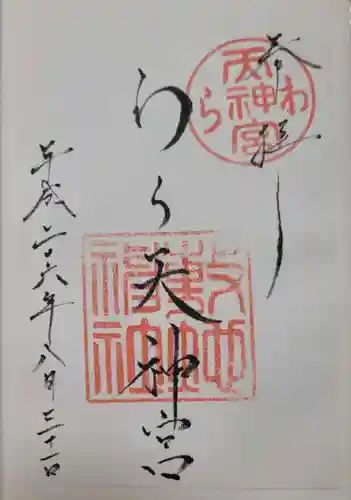 奉拝
わら天神宮
平成二十六年八月三十一日
わら天神宮
敷地神社